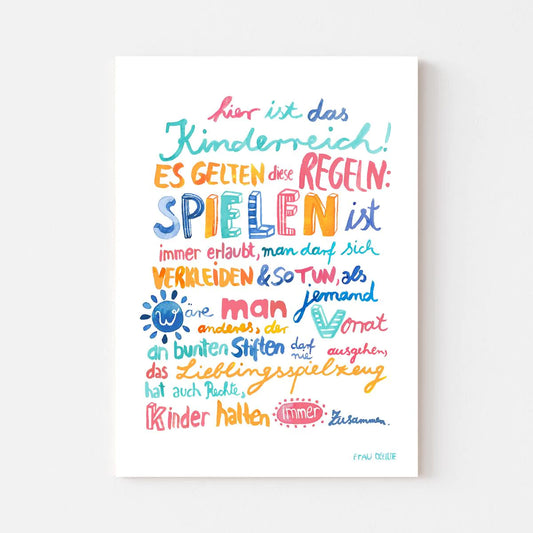 hier ist das
Kinderreich!
ES GELTEN diese REGELN:
SPIELEN ist
immer erlaubt, man darf sich
VERKLEIDEN & SO TUN, als
wäre man jemand
anderes, der Vorrat
an bunten Stiften darf nie ausgehen,
das Lieblingsspielzeug
hat auch Rechte,
Kinder halten immer zusammen.
FRAU